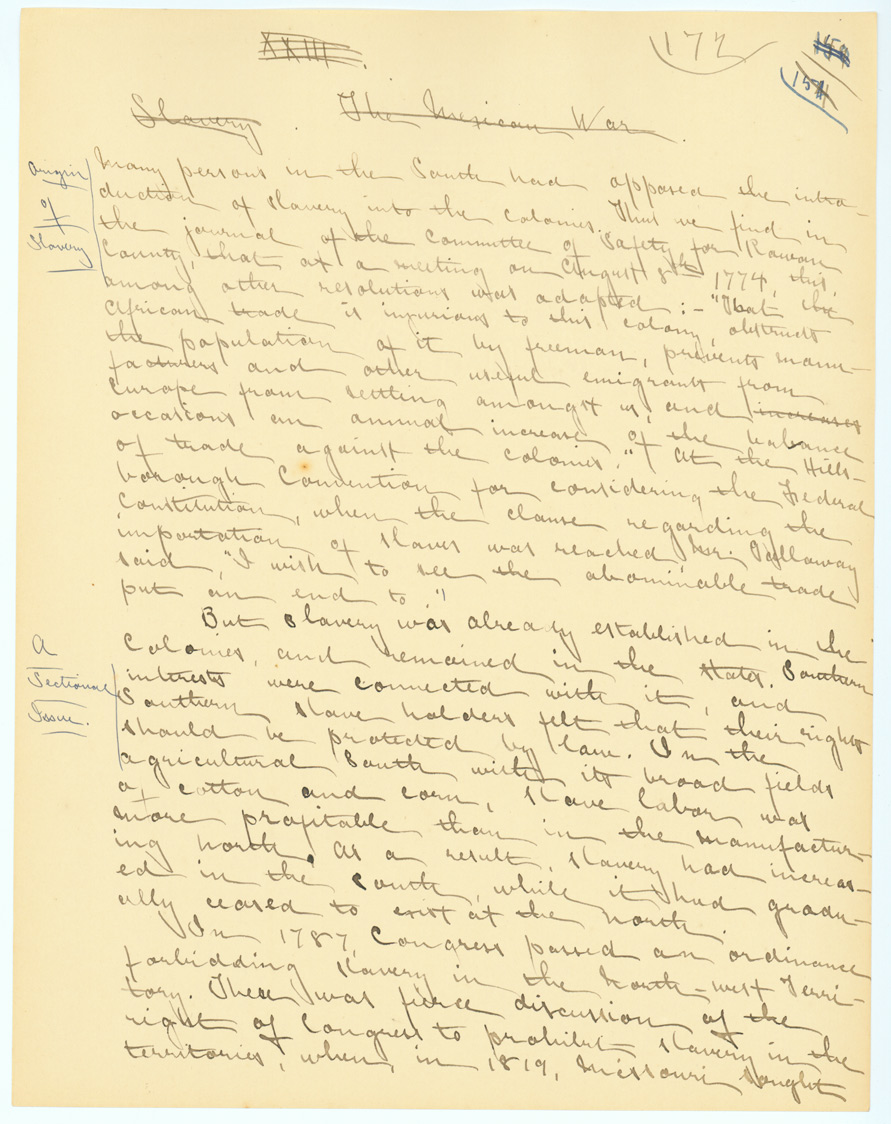 XXIII.
172
154
154
Slavery. The Mexican War.
Origin
of
Slavery
Many persons in the South had opposed the intro-
duction of slavery into the colonies. Thus we find in
the journal of the Committee of Safety for Rowan
County, that at a meeting on August 8th 1774, this,
among other resolutions was adopted :- "That the
African trade is injurious to this colony, obstructs
the population of it by freeman, prevents manu-
facturers and other useful emigrants from
Europe from settling amongst us, and increases
occasions an annual increase of the balance
of trade against the colonies." At the Hills-
borough Convention for considering the Federal
Constitution, when the clause regarding the
importation of slaves was reached Mr. Galloway
said, "I wish to see the abominable trade
put an end to."
But slavery was already established in the
A
Sectional
Issue.
Colonies, and remained in the states. Southern
interests were connected with it, and
Southern slave holders felt that their rights
should be protected by law. In the
agricultural South with its broad fields
of cotton and corn, slave labor was
more profitable than in the manufactur-
ing north. As a result, slavery had increas-
ed in the South, while it had gradu-
ally ceased to exist at the North.
In 1787, Congress passed an ordinance
forbidding slavery in the North-west Terri-
tory. There was fierce discussion of the
right of Congress to prohibit slavery in the
territories, when, in 1819, Missouri sought